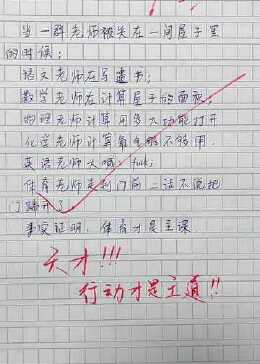 当一群老师被关在一间屋子里
的时候；
语文老师在写遗书；
数学老师在计算屋子的面积；
物理老师计算用多大功能打开
化学老师计算氧气够不够用．
英语老师大喊：fuck；
体育老师走到门前二话不说把
门踹开了．
事实证明．体育才是主课．
天才!!!
行动才是王道!!